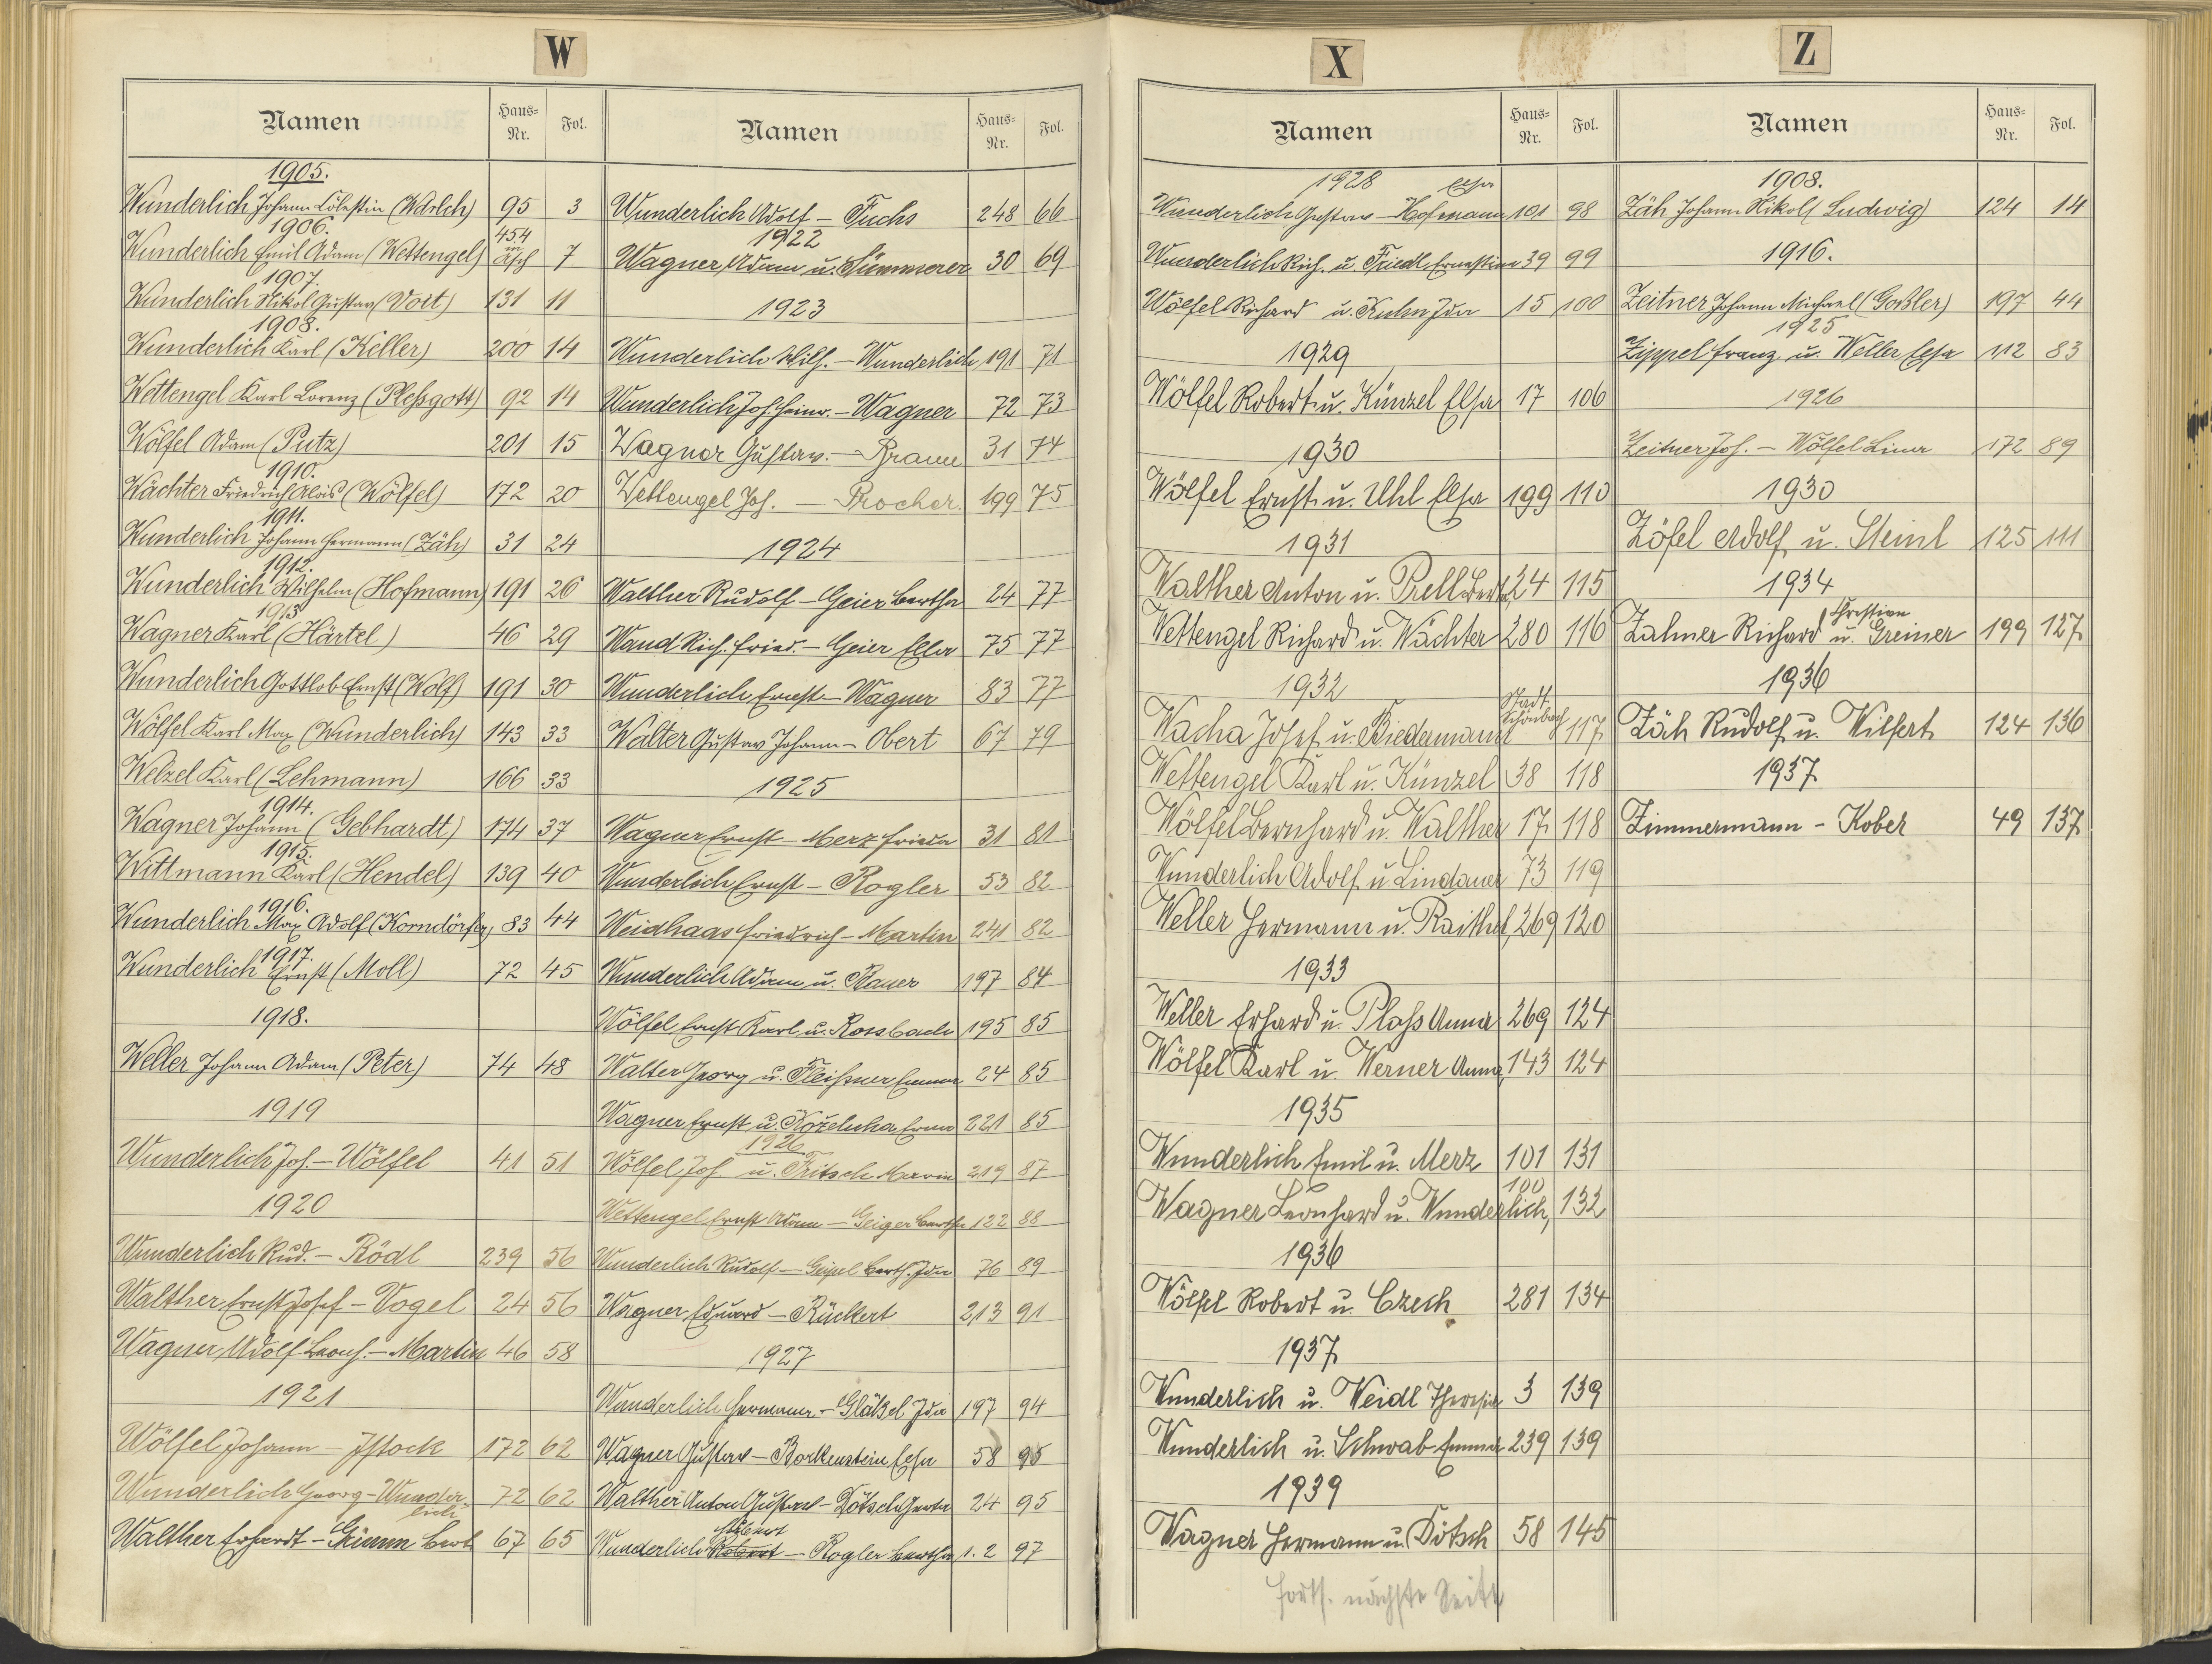 W
Namen Haus-Nr. Fol.
1905.
Wunderlich Johann Cölestin (Wdrlch) 95 3
1906.
Wunderlich Emil Adam (Wettengel) 454 in Asch 7
1907.
Wunderlich Nikol Gustav (Voit) 131 11
1908.
Wunderlich Karl (Keller) 200 14
Wettengel Karl Lorenz (Pleßgott) 92 14
Wölfel Adam (Putz) 201 15
1910.
Wächter Friedrich Alois (Wölfel) 172 20
1911.
Wunderlich Johann Hermann (Zäh) 31 24
1912.
Wunderlich Wilhelm (Hofmann) 191 26
1913
Wagner Karl (Härtel) 46 29
Wunderlich Gottlob Ernst (Wolf) 191 30
Wölfel Karl Max (Wunderlich) 143 33
Welzel Karl (Lehmann) 166 33
1914.
Wagner Johann (Gebhardt) 174 37
1915.
Wittmann Karl (Hendel) 139 40
1916.
Wunderlich Max Adolf (Korndörfer) 83 44
1917.
Wunderlich Ernst (Moll) 72 45
1918.
Weller Johann Adam (Peter) 74 48
1919
Wunderlich Joh. – Wölfel 41 51
1920
Wunderlich Rud. – Rödl 239 56
Walther Ernst Josef – Vogel 24 56
Wagner Adolf Leonh. – Martin 46 58
1921
Wölfel Johann – Jstock 172 62
Wunderlich Georg – Wunderlich 72 62
Walther Erhardt – Grimm Bert 67 65
Namen Haus-Nr. Fol.
Wunderlich Adolf – Fuchs 248 66
1922
Wagner Adam u. Sümmerer 30 69
1923
Wunderlich Wilh. – Wunderlich 191 71
Wunderlich Joh. Heinr. – Wagner 72 73
Wagner Gustav. – Braun 31 74
Wettengel Joh. – Procher. 199 75
1924
Walther Rudolf – Geier Bertha 24 77
Wand Rich. Fried. – Geier Ella 75 77
Wunderlich Ernst – Wagner 83 77
Walter Gustav Johann – Obert 67 79
1925
Wagner Ernst – Merz Frieda 31 81
Wunderlich Ernst – Rogler 53 82
Weidhaas Friedrich – Martin 241 82
Wunderlich Adam u. Bauer 197 84
Wölfel Ernst Karl u. Rossbach 195 85
Walter Georg u. Fleißner Emma 24 85
Wagner Ernst u. Kozelucha Erna 221 85
1926
Wölfel Joh. u. Fritsch Marie 219 87
Wettengel Ernst Adam – Geiger Bertha 122 88
Wunderlich Rudolf – Geipel Berth. Ida 76 89
Wagner Eduard – Rückert 213 91
1927
Wunderlich Hermann. – Gläßel Ida 197 94
Wagner Gustav – Borkenstein Elsa 58 95
Walther Anton Gustav – Dötsch Gerta 24 95
Albert
Wunderlich Robert – Rogler Bertha 1.2 97
X
Namen Haus-Nr. Fol.
1928
Wunderlich Gustav – Hofmann Elsa 101 98
Wunderlich Rich. u. Friedl Ernestine 39 99
Wölfel Richard u. Kuhn Ida 15 100
1929
Wölfel Robert u. Künzel Elsa 17 106
1930
Wölfel Ernst u. Uhl Elsa 199 110
1931
Walther Anton u. Prell Berta 24 115
Wettengel Richard u. Wächter 280 116
1932
Wacha Josef u. Biedermann Stadt Schönbach 117
Wettengel Karl u. Künzel 38 118
Wölfel Bernhard u. Walther 17 118
Wunderlich Adolf u. Lindauer 73 119
Weller Hermann u. Raithel 269 120
1933
Weller Erhard u. Plaß Anna 269 124
Wölfel Karl u. Werner Anna 143 124
1935
Wunderlich Emil u. Merz 101 131
Wagner Leonhard u. Wunderlich, 100 132
1936
Wölfel Robert u. Czech 281 134
1937
Wunderlich u. Weidl Theresia 3 139
Wunderlich u. Schwab Emma 239 139
1939
Wagner Hermann u. Dötsch 58 145
Forts. nächste Seite
Z
Namen Haus-Nr. Fol.
1908.
Zäh Johann Nikol (Ludwig) 124 14
1916.
Zeitner Johann Michael (Goßler) 197 44
1925
Zippel Franz u. Weller Elsa 112 83
1926
Zeitner Joh. – Wölfel Lina 172 89
1930
Zöfel Adolf u. Steinl 125 111
1934
Zahner Richard Christian u. Greiner 199 127
1936
Zäh Rudolf u. Wilfert 124 136
1937
Zimmermann – Kober 49 137